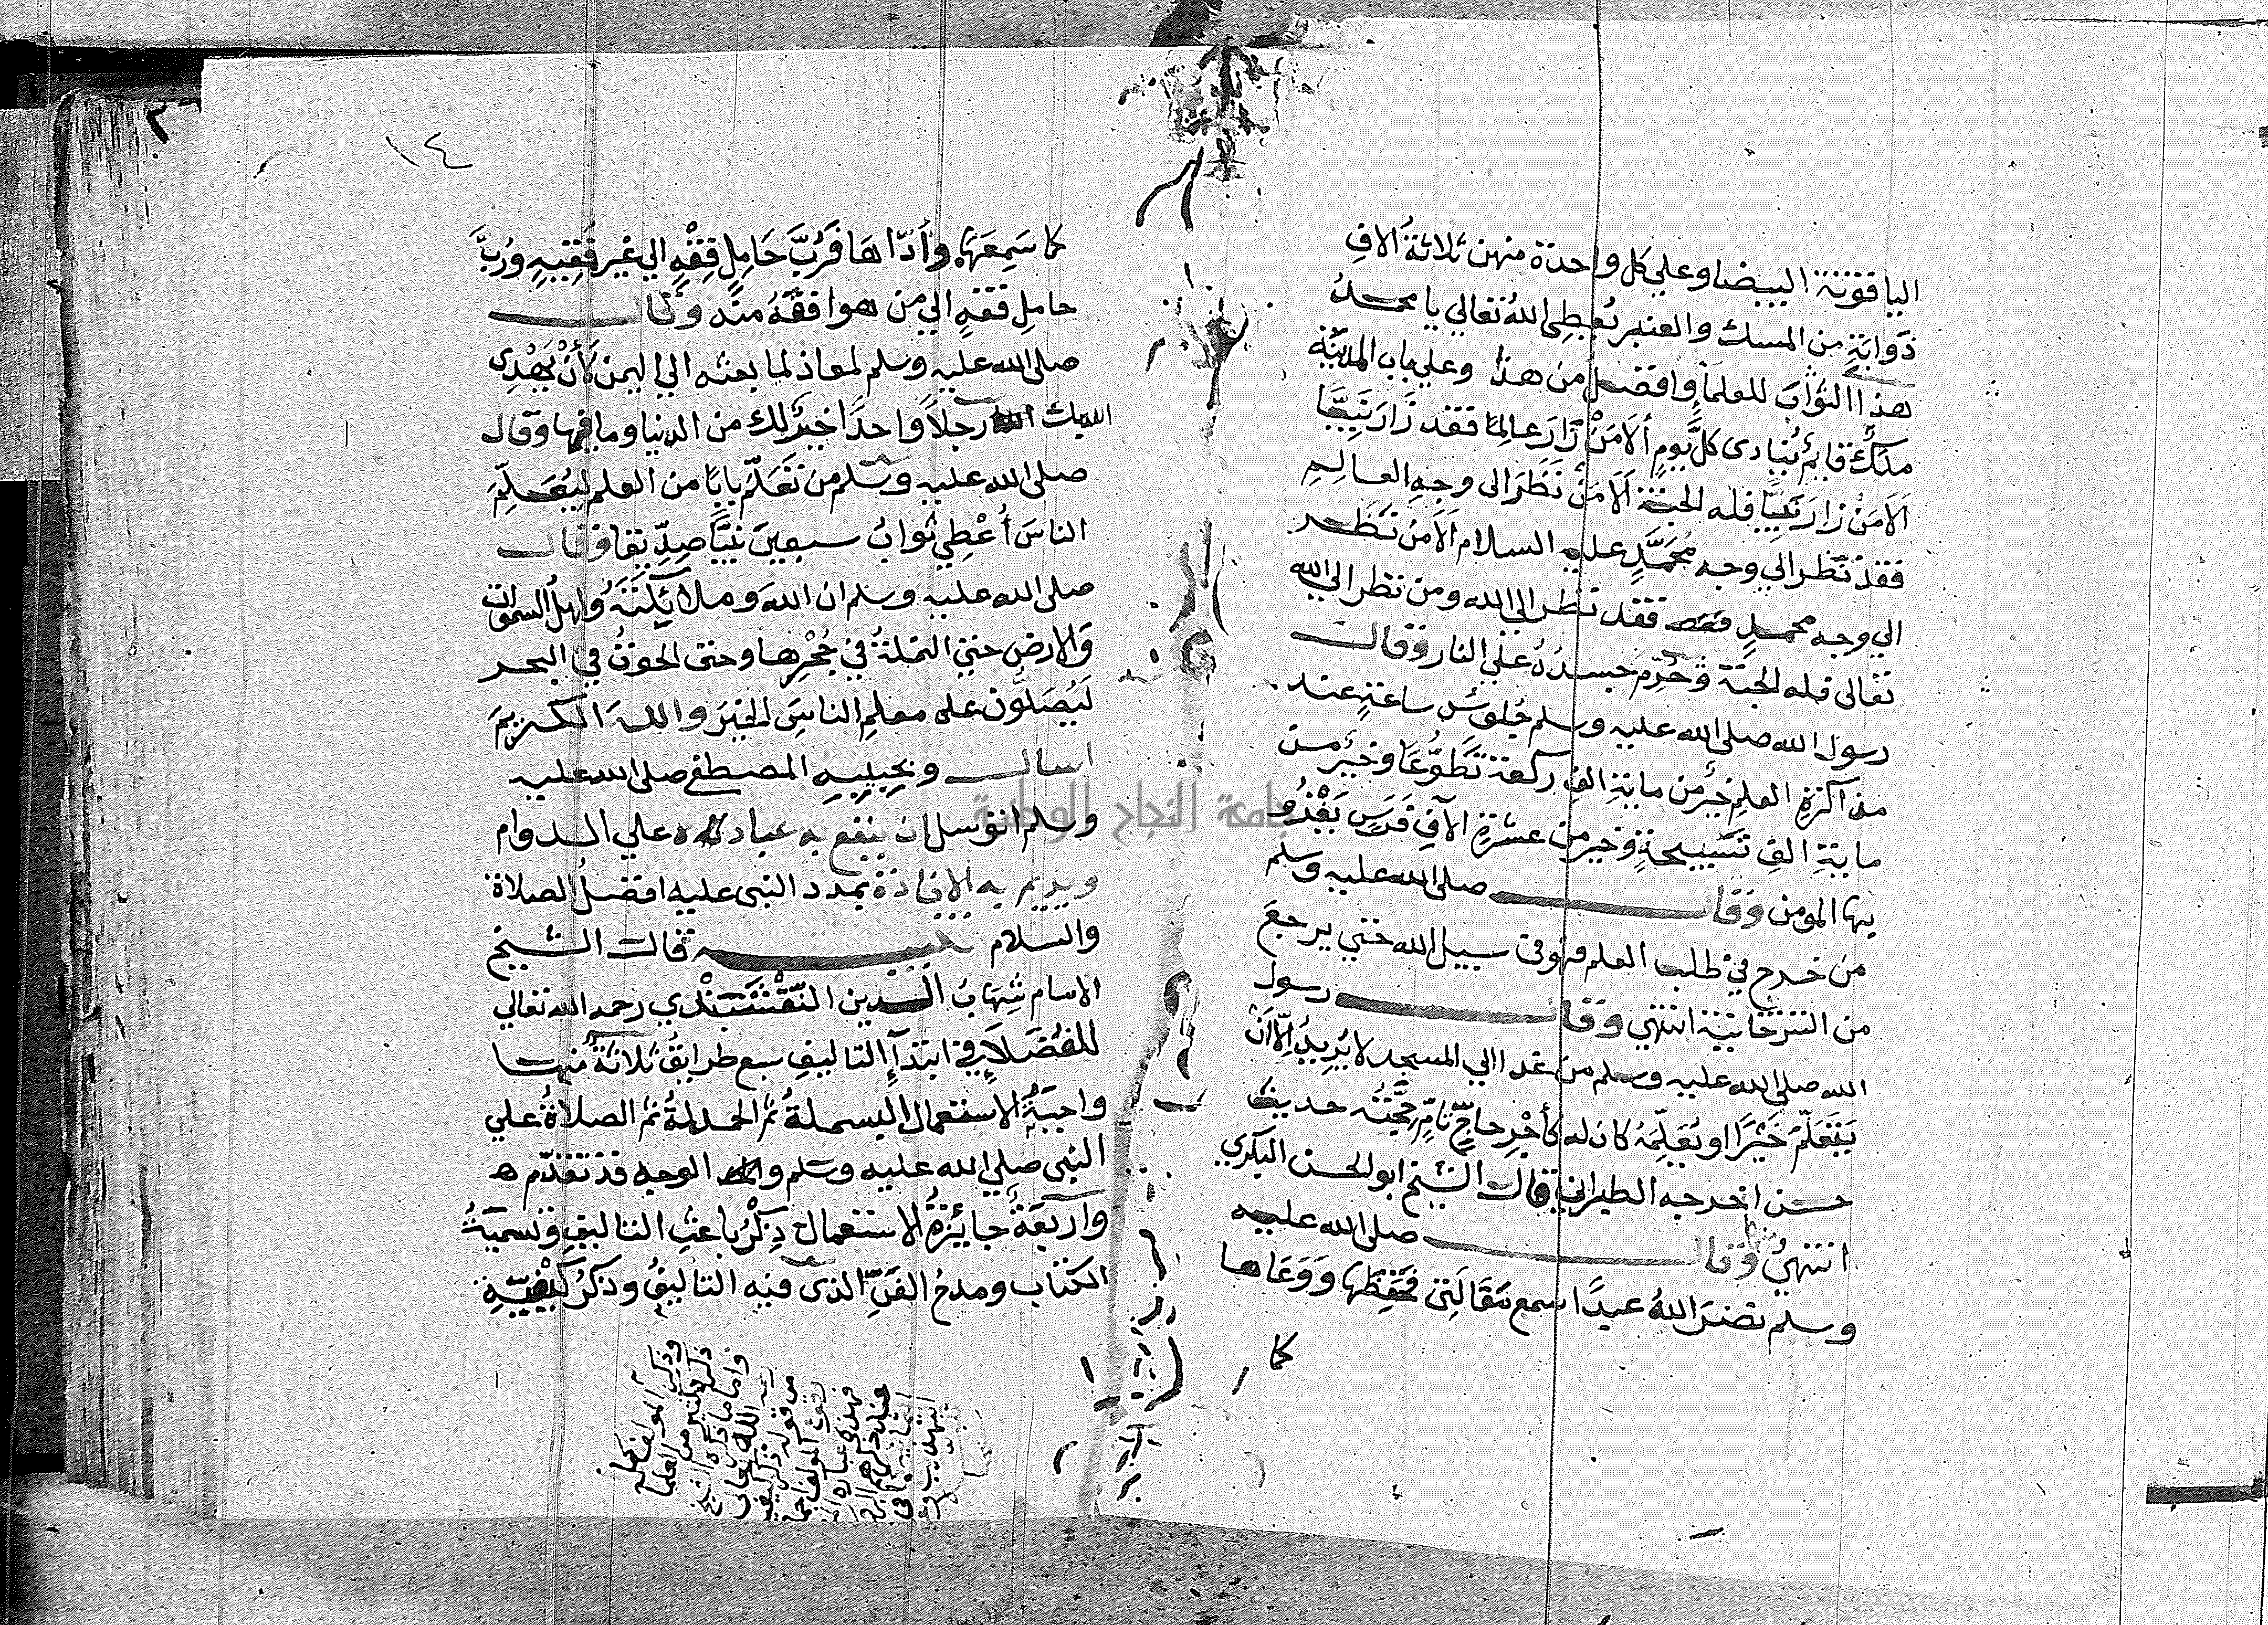 الياقوتة البيضا وعلي كل واحدة منهن ثلاثةُ الافِ
ذوابةٍ من المسك والعنبر يُعطِي اللهُ تعالي يا محمدُ
هذا الثوابَ للعلمأِ وافضل من هذا وعلي باب المدينة
ملكٌ قايمٌ يُنادى كلَّ يومٍ ألاَ مَنْ زَارَ عالِمًا فقد زَارَ نَبِيًّا
اَلاَ مَنْ زارَ نَبِيًّا فله الجنة اَلاَ مَنْ نَظَرَ الى وجهِ العالِمِ
فقدْ نَظَر الي وجه مُحَمَّدٍ عليه السلام اَلاَ مَن نَظَر
الي وجه محمدٍ فقد نظر الى الله ومن نظر الي الله
تعالى فله الجنة وَحُرِّمَ جسدُهُ علي النار وقال
رسول الله صلى الله عليه وسلم جُلوسُ ساعةٍ عند
مذاكرةِ العلمِ خيرٌ من مايةِ الفِ ركعة تَطَوُّعًا وخيرٌ من
مايةِ الفِ تَسْبِيحةٍ وخير من عشرةِ الآفِ فَرَسٍ يَغْذُو
بها المومن وقال صلى الله عليه وسلم
من خرج في طلب العلم فهو فى سبيل الله حتي يرجعَ
من التترخانية انتهي وقال رسول
الله صلى الله عليه وسلم من غدا الي المسجد لا يُرِيدُ اِلاَّ اَنْ
يَتَعَلَّمَ خَيْرًا او يُعَلِّمَهُ كان له كأَجْرِ حاجٍّ تامٍّ حجَّتُه حديث
حسن اخرجه الطبراني قال الشيخ ابو الحسن البكري
انتهيُ وقال صلى الله عليه
وسلم نضرَ اللهُ عبدًا سمع مَقَالَتِى فحَفِظَها وَوَعَاها
كما
١٤
كما سَمِعَهَا وأدّاهَا فَرُبَّ حَامِلِ فِقْهٍ الي غَيْرِ فَقِيهٍ وَرُبَّ
حاملِ فقهٍ الي من هو افقَهُ منه وقال
صلى الله عليه وسلم لمعاذ لما بعثه الي اليمن لَأَنْ يَهْدِى
الله بك رجلاً واحدًا خيرٌ لك من الدنيا وما فيها وقال
صلى الله عليه وسلم من تَعَلَّمَ بابًا من العلم ليُعَلِّمَ
الناسَ أُعْطِي ثوابَ سبعينَ نبيًّا صِدِّيقا وقال
صلى الله عليه وسلم ان اللهَ وملائِكَتَهُ واهلُ السموات
وَالارضِ حتي النملةُ في جُحْرِها وحتى الحوتُ في البحر
لَيُصَلُّون على معلمِ الناسِ الخيرَ واللهَ الكريمَ
اسال وبحبيبهِ المصطفى صلى الله عليه
وسلم اتوسل ان ينفع به عباده علي الدوام
ويديم به الافادة بمدد النبى عليه افضلُ الصلاة
والسلام تنبيه قال الشيخ
الامام شِهَابُ الدين النَّقْشَبَنْدي رحمه الله تعالي
للفُضَلاَءِ في ابتدآءِ التاليفِ سبع طرايقُ ثلاثةٌ منها
واجبةُ الاستعمال البسملةُ ثم الحمدلةُ ثم الصلاةُ علي
النبى صلي الله عليه وسلم الوجه قد تقدّم ه
وأربَعَةٌ جايزةُ الاستعمال ذِكْرُ باعثِ التاليفِ وتسميةُ
الكتاب ومدحُ الفَنِّ الذى فيه التاليفُ وذكرُ كيفيّةِ